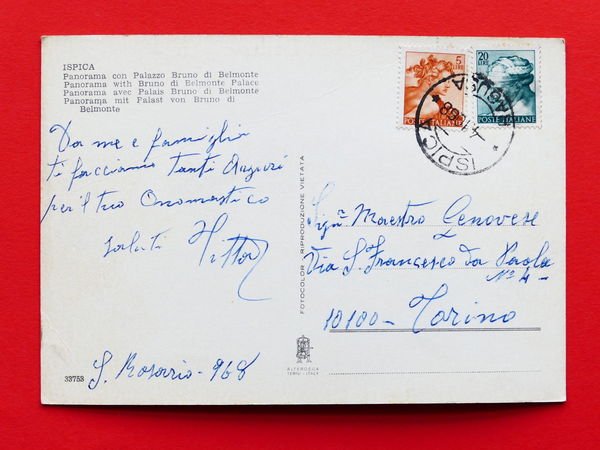 ISPICA
Panorama con Palazzo Bruno di Belmonte
Panorama with Bruno di Belmonte Palace
Panorama avec Palais Bruno di Belmonte
Panorama mit Falast von Bruno di
Belmonte
5
LIRE
POSTE ITALIANE
20
LIRE
POSTE ITALIANE
ISPICA
RAGUSA
Da me e famiglia
ti facciamo tanti Auguri
per il tuo Onomastico
saluti
S. Rosario - 968
33753
FOTOCOLOR RIPRODUZIONE VIETATA
Maestro Genovese
Via S. Francesco da Paola
N° 4 -
10100 - Torino
ALTEROCCA
TERNI - ITALY